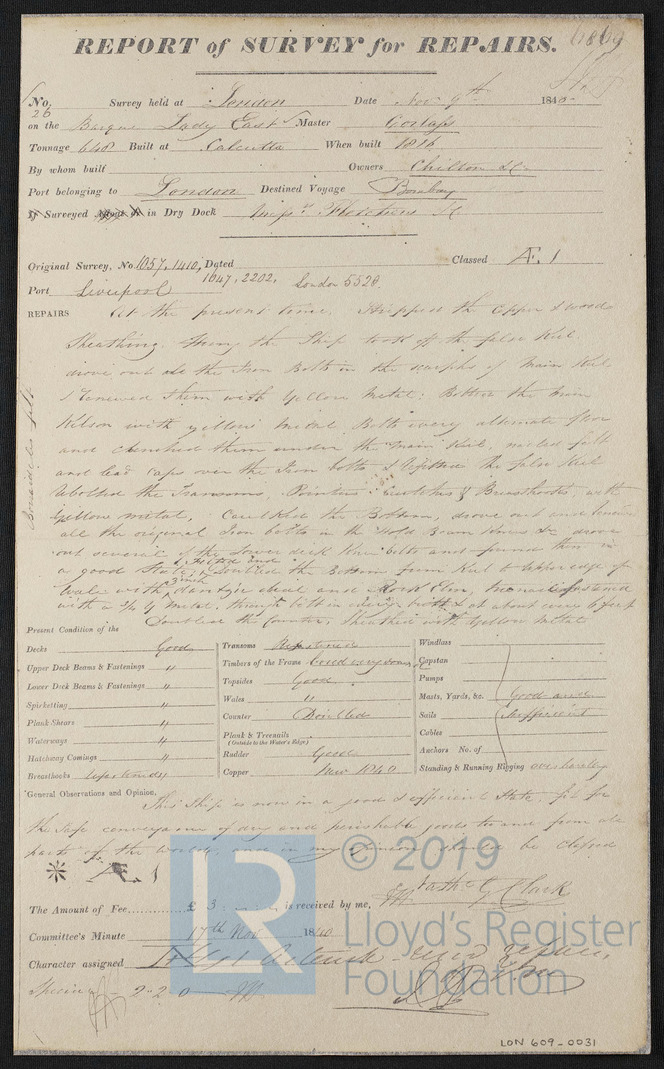 REPORT of SURVEY for REPAIRS.
No. 26 Survey held at London Date Nov 9th 1840
on the Barque Lady East Master
Tonnage 648 Built at Calcutta When built 1816
By whom built Owners Chilton &c
Port belonging to London Destined Voyage Bombay
If Surveyed in Dry Dock Fletchers
Original Survey, No. 1057, 1410, Dated Classed Æ. 1
1647, 2202, London 5528.
Port Liverpool
REPAIRS At the present time, Stripped the Copper & wood
Sheathing. the Ship took off the false Keel
drove out all the Iron Bolts in the scarphs of Main Keel
& renewed them with Yellow Metal: Bolted the Main
Kelson with yellow Metal Bolts every alternate floor
and clenched them under the Main Keel, nailed felt
and lead caps over the Iron bolts & refitted the false Keel
the Transoms, Pointers, Crutches & Breasthooks, with
Yellow metal, Caulked the Bottom, drove out and renewed
all the original Iron bolts in the Hold Beam Knees &c drove
out several of the Lower deck Knee bolts and found them in
a good State; & felted and doubled the Bottom from Keel to upper edge of
Wale with 3 inch Dantzic deal and Rock Elm,
with Metal, through bolt in every butt & at about every 6 feet
Doubled the Counter, Sheathed with Yellow Metal
Present Condition of the
Decks Good
Upper Deck Beams & Fastenings "
Lower Deck Beams & Fastenings "
Spirketting "
Plank Shears "
Waterways "
Hatchway Comings "
Breasthooks
Transoms
Timbers of the Frame
Topsides Good
Wales "
Counter Doubled
Plank & Treenails
(Outside to the Water's Edge)
Rudder Good
Copper New 1840
Windlass
Capstan
Pumps
Masts, Yards, &c. Good and
Sails Sufficient
Cables
Anchors No. of
Standing & Running Rigging overhauling
General Observations and Opinion,
This Ship is now in a good & efficient State, fit for
the safe conveyance of dry and perishable goods to and from all
parts of the World, and in my opinion should be Classed
* Æ. 1
The Amount of Fee £ 3 is received by me,
Nath G Clark
Committee's Minute 17th Nov 1840
Character assigned
Special 2-2-0
© 2019
LR
Lloyd's Register
Foundation
LON 609-0031